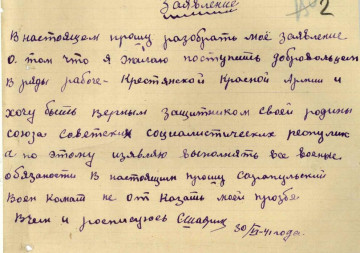 Заявление
2
В настоящем прошу разобрать моё заявление
О том что я желаю поступить добровольцем
В ряды рабоче-Крестянской Красной Армии и
хочу быть верным защитником своей родины
союза советских социалистических республик
а по этому изявляю выполнять все военые
обязаности В настоящим прошу Сарапульский
Воен Комат не от Казать моей прозьбе
В чем и росписуюсь
30/VI-41 года.